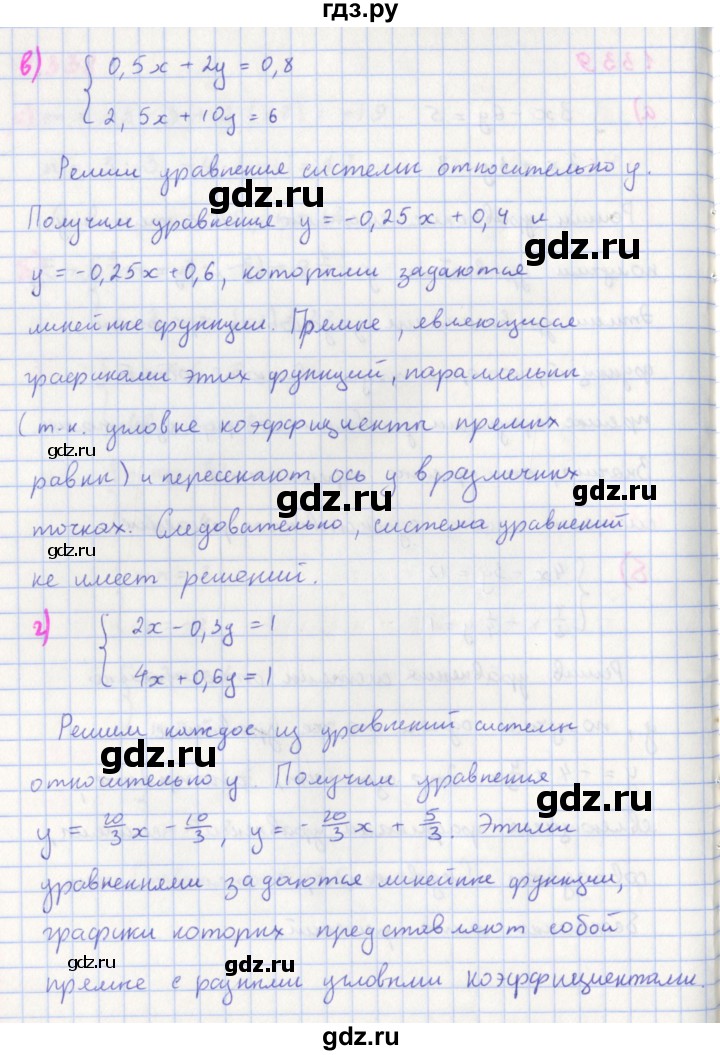 гдз.ру
в) { 0,5x + 2y = 0,8
2,5x + 10y = 6
Решим уравнения системы относительно y.
gdz.ru
Получим уравнения y = -0,25x + 0,4 и
gdz.ru
y = -0,25x + 0,6, которыми задаются
линейные функции. Прямые, являющиеся
gdz.ru
графиками этих функций, параллельны
(т.к. угловые коэффициенты прямых
gdz.ru
равны) и пересекают ось y в различных
gdz.ru
точках. Следовательно, система уравнений
не имеет решений.
gdz.ru
г) { 2x - 0,3y = 1
4x + 0,6y = 1
Решим каждое из уравнений системы
gdz.ru
относительно y. Получим уравнения
gdz.ru
y = 20/3 x - 10/3, y = -20/3 x + 5/3. Этими
уравнениями задаются линейные функции,
gdz.ru
графики которых представляют собой
gdz.ru
прямые с разными угловыми коэффициентами.
gdz.ru